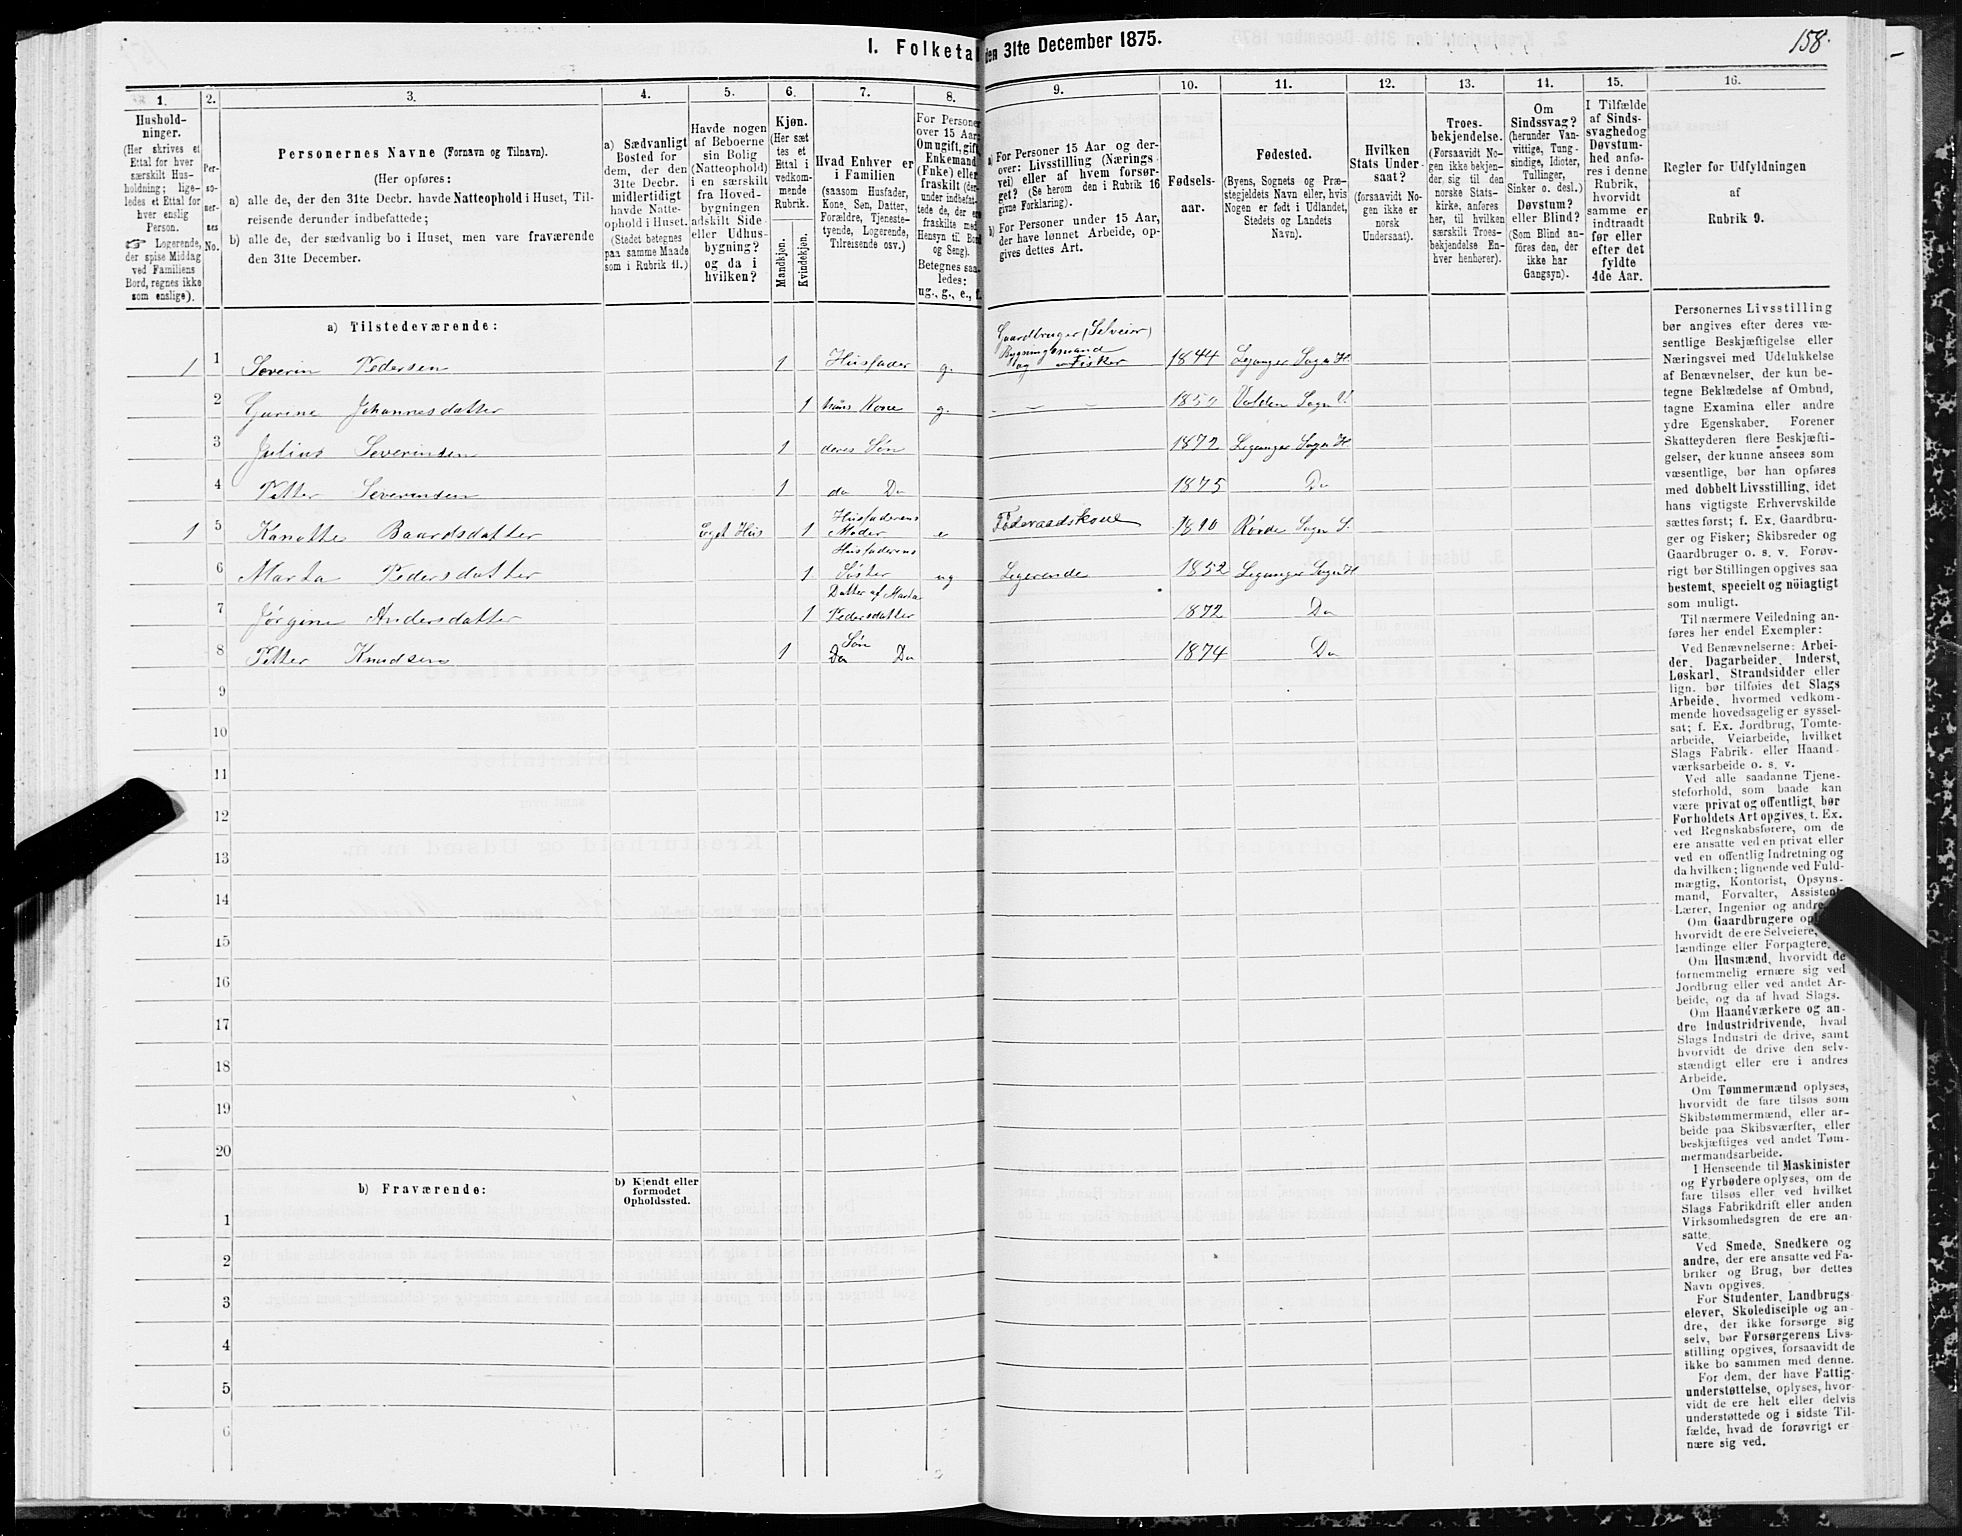 158.
I. Folketal den 31te December 1875.
1. 2. 3. 4. 5. 6. 7. 8. 9. 10. 11. 12. 13. 14. 15. 16.
Hushold-
ninger.
(Her skrives et
Ettal for hver
særskilt Hus-
holdning; lige-
ledes et Ettal for
hver enslig
Person.
☞ Logerende,
der spise Middag
ved Familiens
Bord, regnes ikke
som enslige).
Per-
so-
ner-
nes
No.
Personernes Navne (Fornavn og Tilnavn).
(Her opføres:
a) alle de, der den 31te Decbr. havde Natteophold i Huset, Til-
reisende derunder indbefattede;
b) alle de, der sædvanlig bo i Huset, men vare fraværende
den 31te December.
a) Sædvanligt
Bosted for
dem, der den
31te Decbr.
midlertidigt
havde Natte-
ophold i Huset.
(Stedet betegnes
paa samme Maade
som i Rubrik 11.)
Havde nogen
af Beboerne
sin Bolig
(Natteophold)
i en særskilt
fra Hoved-
bygningen
adskilt Side-
eller Udhus-
bygning?
og da i
hvilken?
Kjøn.
(Her sæt
tes et
Ettal i
vedkom-
mende
Rubrik.
Mandkjøn.
Kvindekjøn.
Hvad Enhver er
i Familien
(saasom Husfader,
Kone, Søn, Datter,
Forældre, Tjeneste-
tyende, Logerende,
Tilreisende osv.)
For Personer
over 15 Aar:
Om ugift, gift,
Enkemand
(Enke) eller
fraskilt (der-
under indbefat-
tede de, der er
fraskilte med
Hensyn til Bord
og Seng).
Betegnes saa-
ledes:
ug., g., e., f.
a) For Personer 15 Aar og der-
over: Livsstilling (Nærings-
vei) eller af hvem forsør-
get? (Se herom den i Rubrik 16
givne Forklaring).
b) For Personer under 15 Aar,
der have lønnet Arbeide, op-
gives dettes Art.
Fødsels-
aar.
Fødested.
(Byens, Sognets og Præ-
stegjeldets Navn eller, hvis
Nogen er født i Udlandet,
Stedets og Landets
Navn).
Hvilken
Stats Under-
saat?
(forsaavidt No-
gen ikke er
norsk
Undersaat).
Troes-
bekjendelse.
(Forsaavidt No-
gen ikke bekjen-
der sig til den
norske Stats-
kirke, anføres
her, til hvilken
særskilt Troes-
bekjendelse En-
hver henhører).
Om
Sindssvag?
(herunder Van-
vittige, Tung-
sindige, Idioter,
Tullinger,
Sinker o. desl.)
Døvstum?
eller Blind?
(Som Blind an-
føres den, der
ikke har
Gangsyn).
I Tilfælde
af Sinds-
svaghed og
Døvstum-
hed anfø-
res i denne
Rubrik,
hvorvidt
samme er
indtraadt
før eller
efter det
fyldte
4de Aar.
Regler for Udfyldningen
af
Rubrik 9.
a) Tilstedeværende:
1 1 Severin Pedersen 1 Husfader g. Gaardbruger (Selveier) Bygningsmand og Fisker 1844 Leganger Sogn H.
2 Gurine Johannesdatter 1 hans Kone g. – – – Volden Sogn
3 Julius Severinsen 1 deres Søn 1872 Leganger Sogn H
4 Petter Severinsen 1 do Do 1875 Do
1 5 Baardsdatter Eget Hus 1 Husfaderens Moder e Føderaadskone 1810 Rovde Sogn S.
6 Marta Pedersdatter 1 Husfaderens Søster ug Logerende 1852 Leganger Sogn H
7 Jørgine Andersdatter 1 Datter af Marta Pedersdatter 1872 Do
8 Petter Knudsen 1 Søn Do Do 1874 Do
9
10
11
12
13
14
15
16
17
18
19
20
b) Fraværende:
b) Kjendt eller
formodet
Opholdssted.
1
2
3
4
5
6
Personernes Livsstilling
bør angives efter deres væ-
sentlige Beskjæftigelse eller
Næringsvei med Udelukkelse
af Benævnelser, der kun be-
tegne Beklædelse af Ombud,
tagne Examina eller andre
ydre Egenskaber. Forener
Skatteyderen flere Beskjæfti-
gelser, der kunne ansees som
væsentlige, bør han opføres
med dobbelt Livsstilling, idet
hans vigtigste Erhvervskilde
sættes først; f. Ex. Gaardbru-
ger og Fisker; Skibsreder og
Gaardbruger o. s. v. Forøv-
rigt bør Stillingen opgives saa
bestemt, specielt og nöiagtigt
som muligt.
Til nærmere Veiledning an-
føres her endel Exempler:
Ved Benævnelserne: Arbei-
der, Dagarbeider, Inderst,
Løskarl, Strandsidder eller
lign. bør tilføies det Slags
Arbeide, hvormed vedkom-
mende hovedsagelig er syssel-
sat; f. Ex. Jordbrug, Tomte-
arbeide, Veiarbeide, hvilket
Slags Fabrik- eller Haand-
værksarbeide o. s. v.
Ved alle saadanne Tjene-
steforhold, som baade kan
være privat og offentligt, bør
Forholdets Art opgives, f. Ex.
ved Regnskabsførere, om de
ere ansatte ved en privat eller
ved en offentlig Indretning og
da hvilken; lignende ved Fuld-
mægtig, Kontorist, Opsyns-
mand, Forvalter, Assistent,
Lærer, Ingeniør og andre.
Om Gaardbrugere
hvorvidt de ere Selveiere,
lændinge eller Forpagtere.
Om Husmænd, hvorvidt de
fornemmelig ernære sig ved
Jordbrug eller ved andet Ar-
beide, og da af hvad Slags.
Om Haandværkere og an-
dre Industridrivende, hvad
Slags Industri de drive, samt
hvorvidt de drive den selv-
stændigt eller ere i andres
Arbeide.
Om Tømmermænd oplyses,
hvorvidt de fare tilsøs som
Skibstømmermænd, eller ar-
beide paa Skibsværfter, eller
beskjæftiges ved andet Tøm-
mermandsarbeide.
I Henseende til Maskinister
og Fyrbødere oplyses, om de
fare tilsøs eller ved hvilket
Slags Fabrikdrift eller anden
Virksomhedsgren de ere an-
satte.
Ved Smede, Snedkere og
andre, der ere ansatte ved Fa-
briker og Brug, bør dettes
Navn opgives.
For Studenter, Landbrugs-
elever, Skoledisciple og an-
dre, der ikke forsørge sig
selv, bør Forsørgerens Livs-
stilling opgives, forsaavidt de
ikke bo sammen med denne.
For dem, der have Fattig-
understøttelse, oplyses, hvor-
vidt de ere helt eller delvis
understøttede og i sidste Til-
fælde, hvad de forøvrigt er-
nære sig ved.